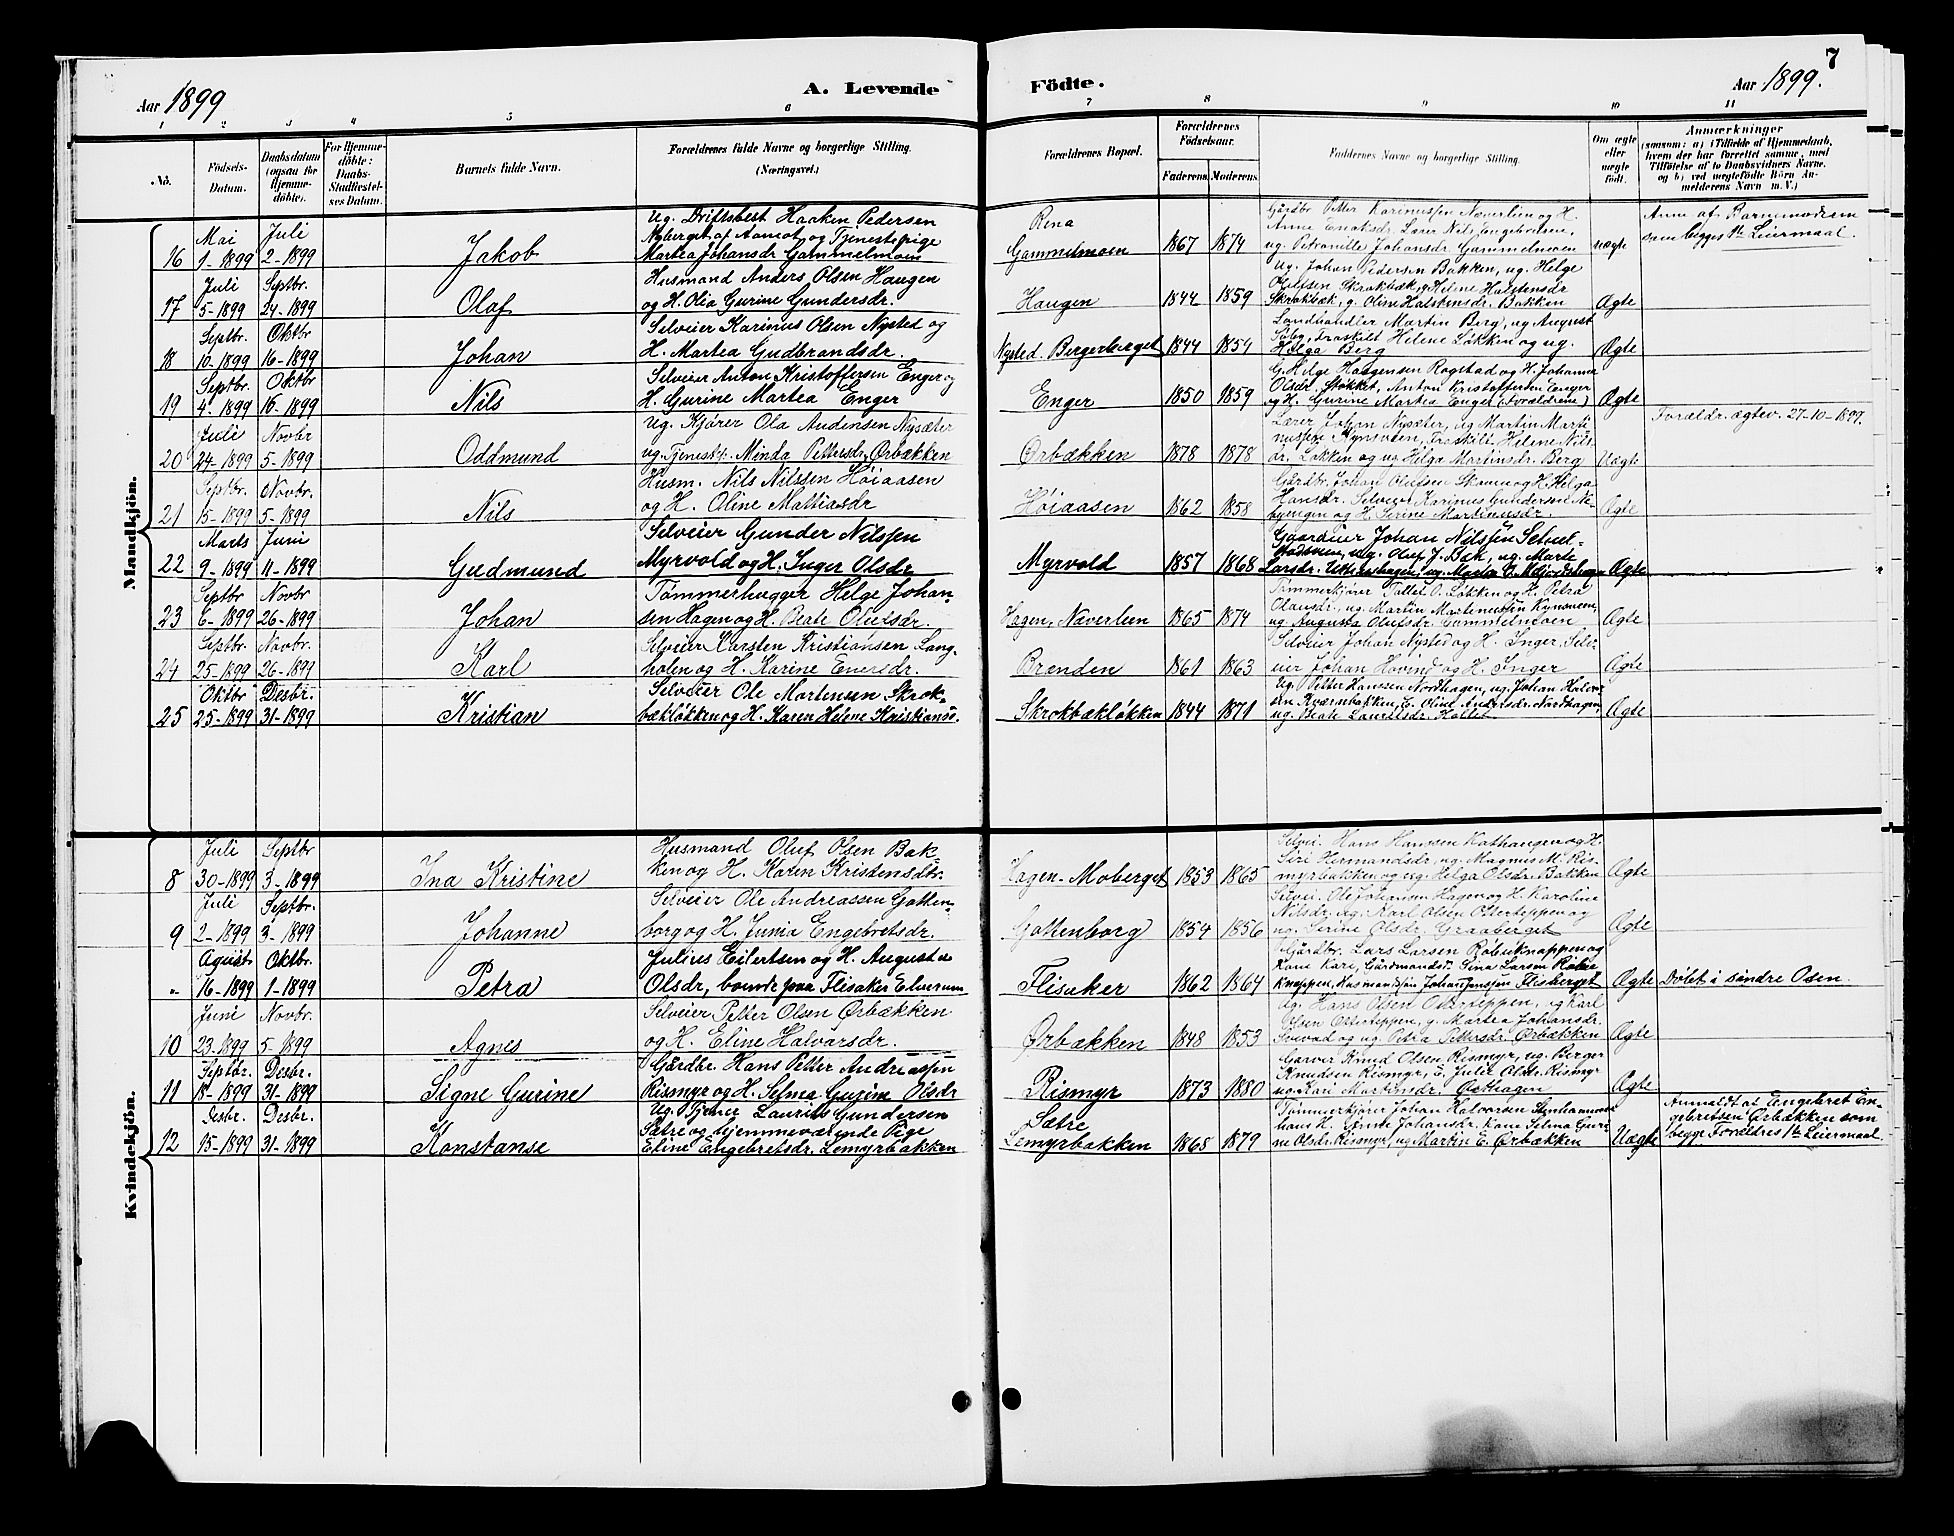 7
Aar 1899
A. Levende
Födte.
Aar 1899.
1 2 3 4 5 6 7 8 9 10 11
No.
Födsels-
Datum.
Daabsdatum
(ogsaa for
Hjemme-
döbte).
For Hjemme-
döbte:
Daabs-
Stadfæstel-
ses Datum.
Barnets fulde Navn.
Forældrenes fulde Navne og borgerlige Stilling.
(Næringsvei.)
Forældrenes Bopæl.
Forældrenes
Födselsaar.
Faderens. Moderens.
Faddernes Navne og borgerlige Stilling.
Om ægte
eller
uægte
födt.
Anmærkninger
(saasom: a) i Tilfælde af Hjemmedaab,
hvem der har forrettet samme, med
Tilföielse af to Daabsvidners Navne,
og b) ved uægtefödte Börn An-
melderens Navn m. V.)
Mandkjön.
16
Mai
1-1899
Juli
2-1899
Jakob
Ug. Driftsbest Haaken Pedersen
Nyberget af Aamot og Tjenestepige
Martea Johansdr Gammelmoen
Rena
Gammelmoen
1867 1874
Gårdbr Petter Karinussen Næverlien og H.
Anne Enaksdr. Lærer Nils
ug. Petronille Johansdr Gammelmoen
uægte
Anm. af Barnemoderen
som begges 1te Leiermaal.
17
Juli
5-1899
Septbr.
24-1899
Olaf
Husmand Anders Olsen Haugen
og H. Olia Gurine Gundersdr.
Haugen
1844 1859
Ug. Johan Pedersen Bakken, ug. Helge
Olufsen Skrokbæk, g. Helene Halstensdr
Skrokbæk, g. Oline Halstensdr. Bakken
Ægte
18
Septbr.
10-1899
Oktbr
16-1899
Johan
Selveier Karinus Olsen Nysted og
H. Martea Gudbrandsdr.
Nysted. Bergerberget
1844 1854
Landhandler Martin Berg, ug August
Fraskilt Helene Løkken og ug.
Helga Berg
Ægte
19
Septbr.
4-1899
Oktbr
16-1899
Nils
Selveier Anton Kristoffersen Enger og
H. Gurine Martea Enger
Enger
1850 1859
G. Helge Haagensen Rogstad og H. Johanna
Olsdr. Støkket, Anton Kristoffersen Enger
og H. Gurine Martea Enger (Forældrene)
Ægte
20
Juli
24-1899
Novbr
5-1899
Oddmund
Ug. Kjører Ola Audensen Nysæter
ug. Tjenestp. Minda Pettersdr. Ørbækken
Ørbækken
1878 1878
Lærer Johan Nysæter, ug Martin Marti-
nussen Kynsveen, Fraskilt Helene Nils-
dr. Løkken og ug Helga Martinsdr. Berg
Uægte
Forældr. ægtev. 27-10-1899.
21
Septbr.
15-1899
Novbr.
5-1899
Nils
Husm. Nils Nilssen Høiaasen
og H. Oline Mattiasdr
Høiaasen
1862 1858
Gårdbr. Johan Olufsen Skaaren og H. Helga
Hansdr. Selveier Karinus Gundersen Ne-
byengen og H. Serine Martinusdr.
Ægte
22
Marts
9-1899
Juni
11-1899
Gudmund
Selveier Gunder Nilssen
Myrvold og H. Inger Olsdr
Myrvold
1857 1868
Gaardeier Johan Nilssen
ug. Oluf J. Bek, ug. Marte
Larsdr.
Ægte
23
Septbr
6-1899
Novbr
26-1899
Johan
Tømmerhugger Helge Johan-
sen Hagen og H. Beate Olufsdr.
Hagen, Næverlien
1865 1874
Tømmerkjører Tollef O. Løkken og H. Petra
Olausdr., ug. Martin Martinussen Kynsveen,
ug Augusta Olufsdr. Gammelmoen
Ægte
24
Septbr.
25-1899
Novbr.
26-1899
Karl
Selveier Karsten Kristiansen Lang-
holen og H. Karine Enersdr.
Brenden
1861 1863
Selveier Johan Nysted og H. Inger, Selv-
eier Johan Hovind og H. Inger
Ægte
25
Oktbr
25-1899
Desbr.
31-1899
Kristian
Selveier Ole Martensen Skrok-
bækløkken og H. Karen Helene Kristiansdr.
Skrokbækløkken
1844 1871
Ug. Petter Hanssen Nordhagen, ug. Johan Halvor-
sen Kværnbakken, E. Oline Andersdr. Nordhagen,
ug. Beate Lauritsdr. Koltet
Ægte
Kvindekjön.
8
Juli
30-1899
Septbr
3-1899
Ina Kristine
Husmand Oluf Olsen Bak-
ken og H. Karen Kristensdtr.
Hagen-Moberget
1853 1865
Selvei. Hans Hanssen Kathaugen og H.
Siri Hermandsdr, ug. Magnus M. Ris-
myrbakken og ug. Helga Olsdr. Bakken
Ægte
9
Juli
2-1899
Septbr.
3-1899
Johanne
Selveier Ole Andreassen Gotten-
borg og H. Junia Engebretsdr.
Gottenborg
1854 1856
Selvei. Ole Johansen Hagen og H. Karoline
Nilsdr. ug. Karl Olsen Otterteppen og
ug. Serine Olsdr. Graaberget
Ægte
"
August
16-1899
Oktbr.
1-1899
Petra
Julius Eilertsen og H. Augusta
Olsdr, boende paa Flisaker Elverum
Flisaker
1862 1864
Gårdbr. Lars Larsen Røbuknappen og
Kone Kari, Gårdmandst. Sina Larsen
Knappen, Husmandssøn Johan Jenssen Flisberget
Ægte
Døbt i søndre Osen.
10
Juni
23-1899
Novbr.
5-1899
Agnes
Selveier Petter Olsen Ørbækken
og H. Eline Halvarsdr.
Ørbækken
1848 1853
Ug. Hans Olsen Otterteppen, ug Karl
Olsen Otterteppen, g. Martea Johansdr.
Svevad og ug. Petra Pettersdr. Ørbækken
Ægte
11
Septbr.
18-1899
Desbr.
31-1899
Signe Gurine
Gårdbr. Hans Petter Andreassen
Rismyr og H. Selma Gurine Olsdr
Rismyr
1873 1880
Garver Knud Olsen Rismyr, ug. Berger
Knudsen Rismyr, E. Julie Olsdr. Rismyr
ug Kari Martinsdr. Østhagen
Ægte
12
Desbr.
15-1899
Desbr.
31-1899
Konstanse
Ug. Tjener Laurits Gundersen
Sætre og hjemmeværende Pige
Eline Engebretsdr. Lemyrbakken
Sætre
Lemyrbakken
1865 1879
Tømmerkjører Johan Halvorsen Stenhammer
hans H. Johansdr. Kone Selma Guri-
ne Olsdr. Rismyr, ug Martin E. Ørbækken
Uægte
Anmeldt af Engebret En-
gebretsen Ørbækken som
begge Forældres 1te Leiermaal